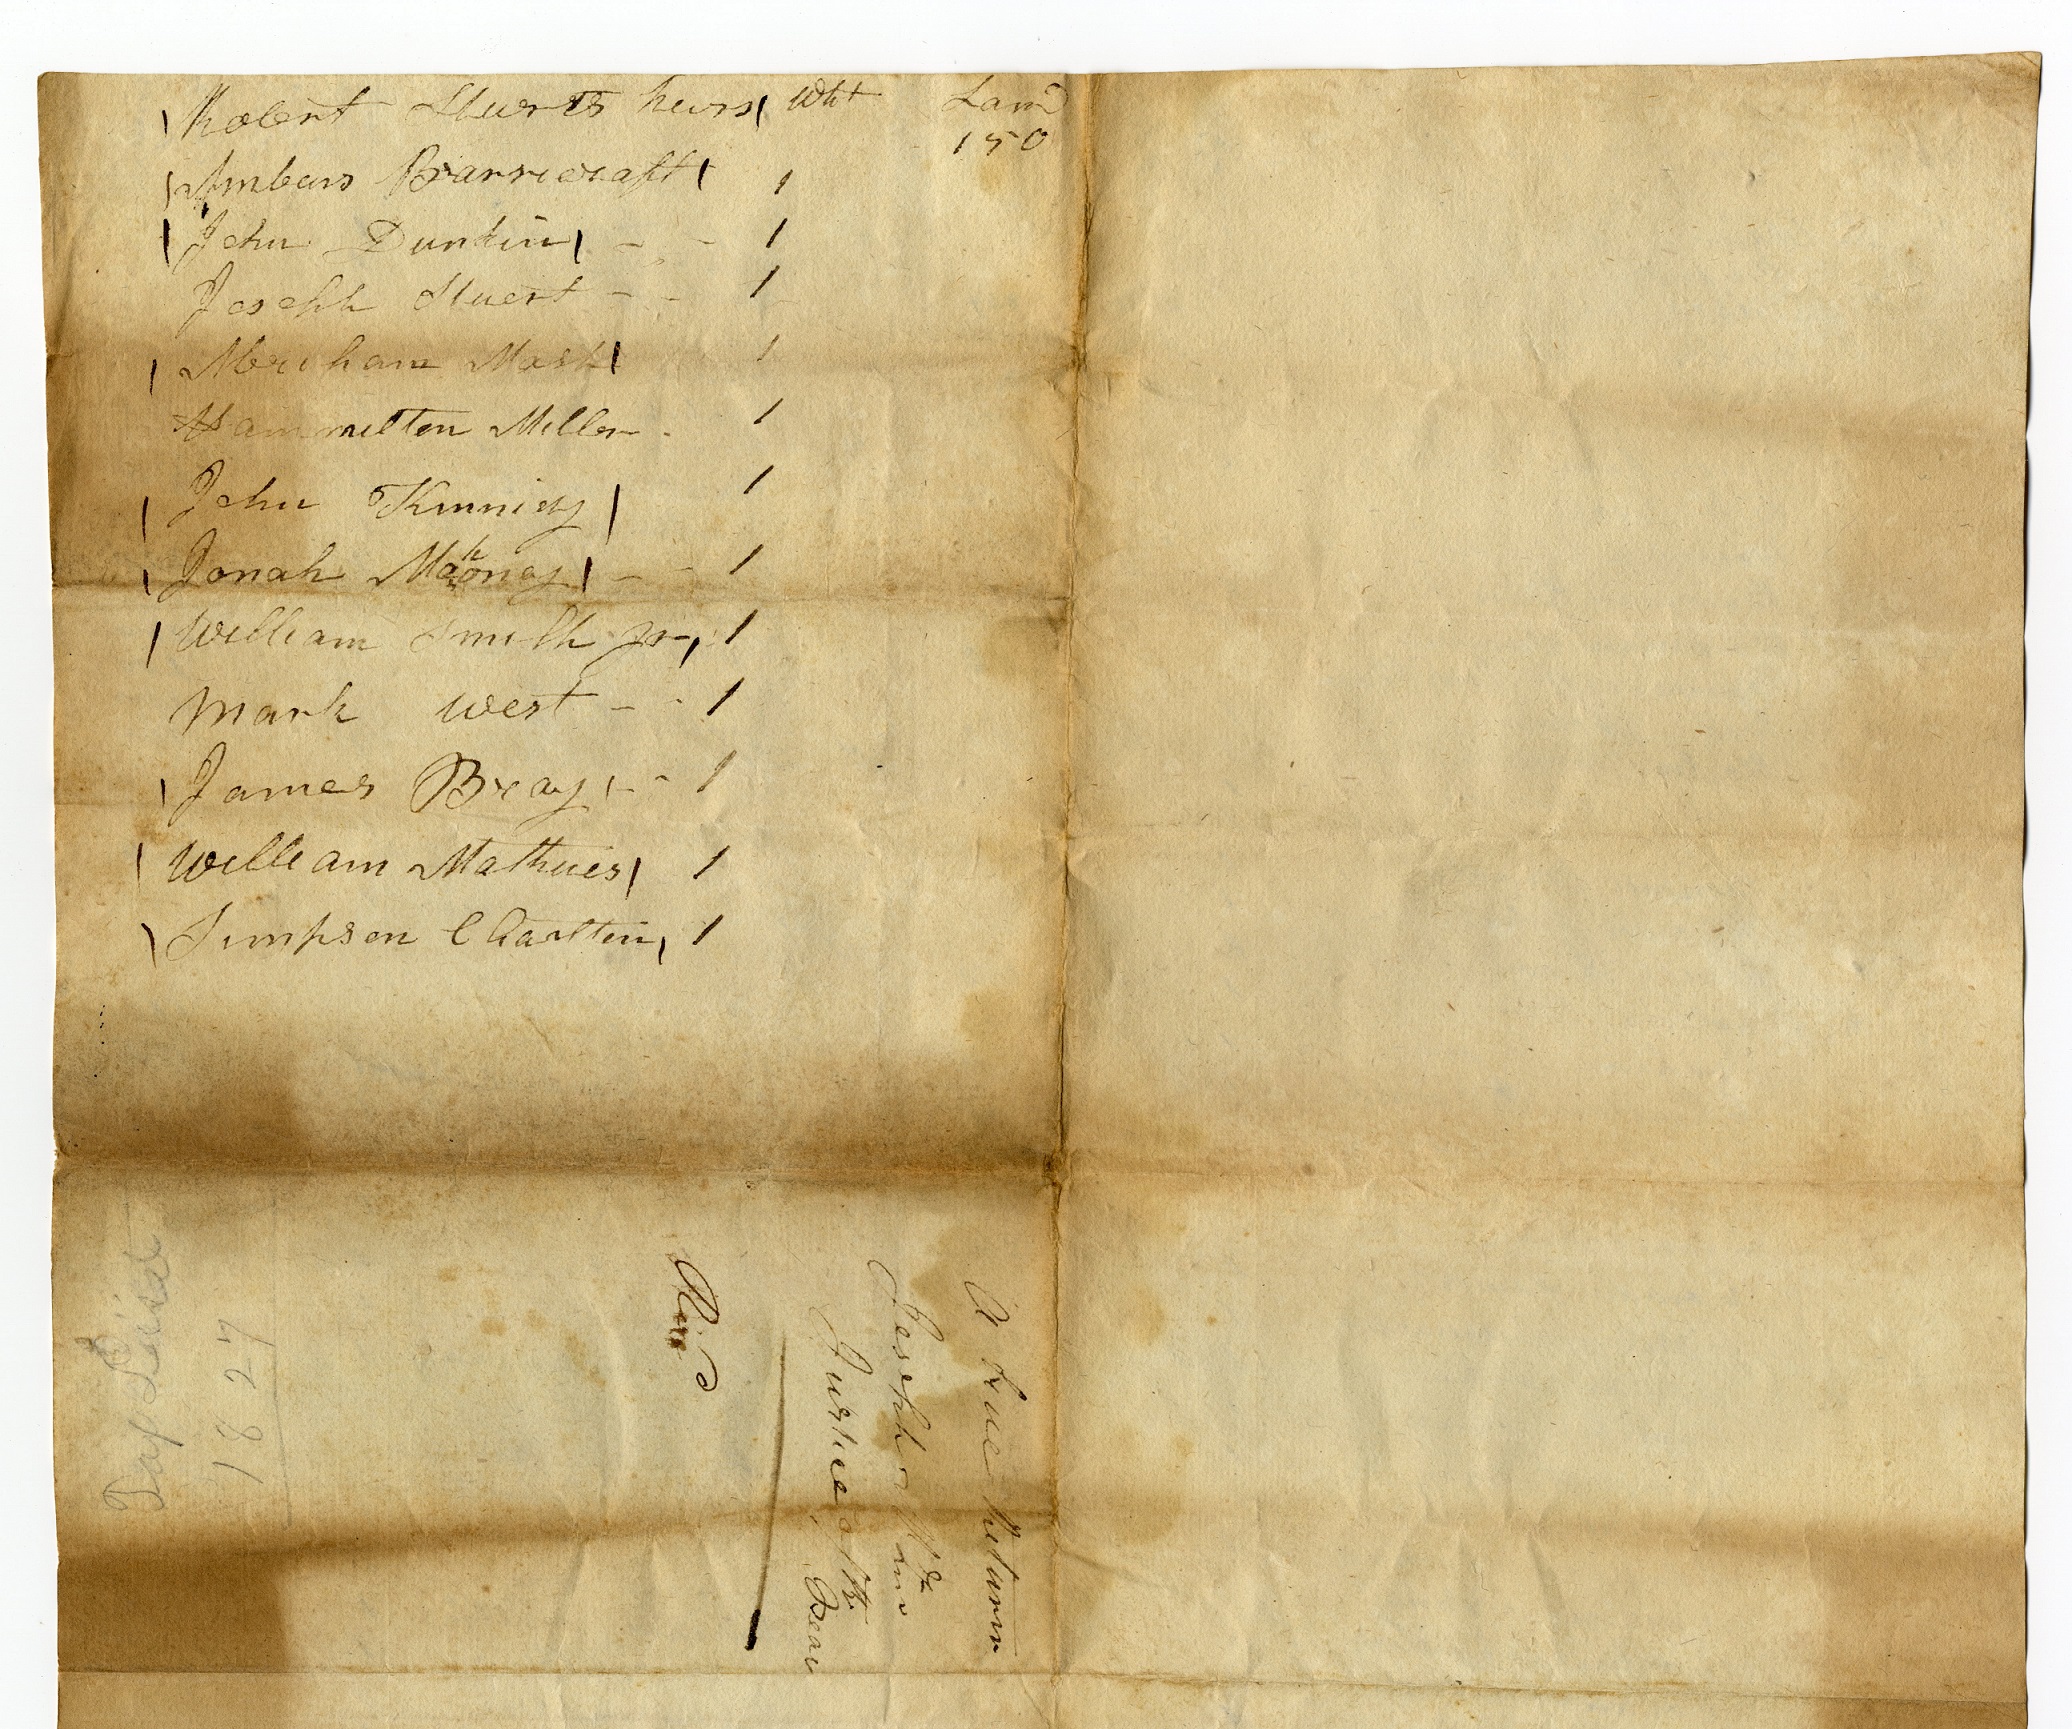 Robert Stuerts heirs Wht Land
150
Ambers Barricraft 1
John Dunkin - - 1
Joseph Stuert - - 1
Meriham Mask 1
Hammilton Miller - 1
John Kinnidy 1
Jonah Mahoney - - 1
William Smith Jr 1
Mark West - - 1
James Bray - 1
William Mathies 1
Simpson Charltin 1
A true Return
Joseph
Justice of the Peac
Tax List
1827